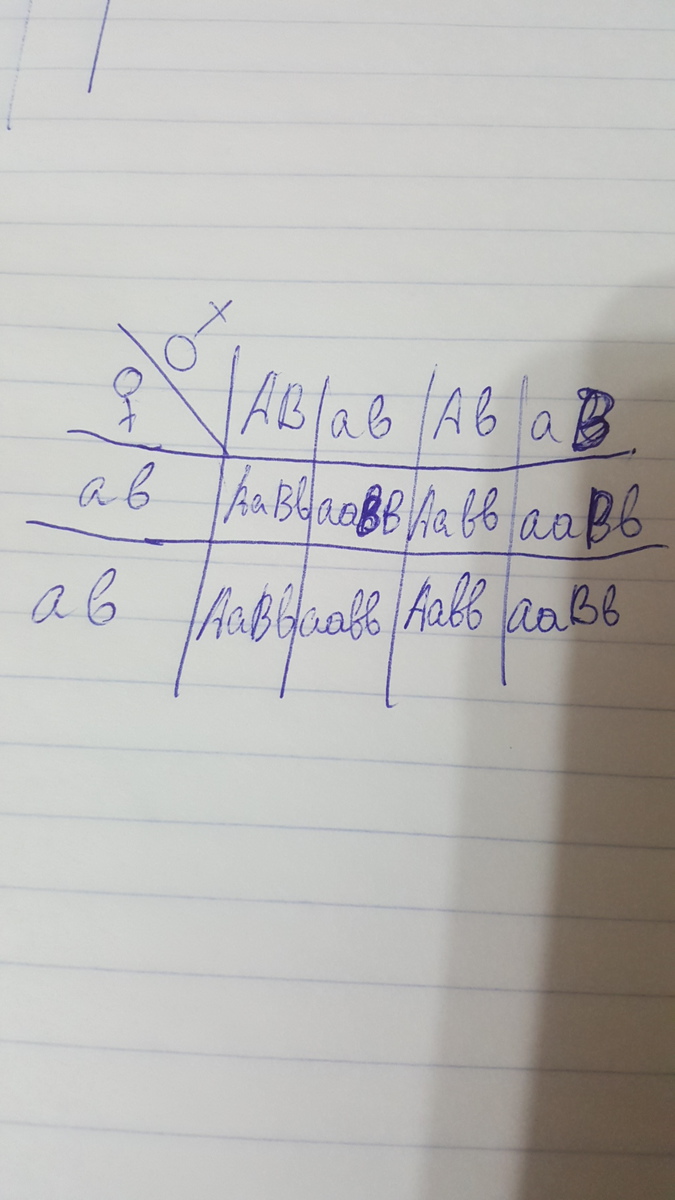 ♀ ♂ AB ab Ab aB
ab AaBb aaBb Aabb aaBb
ab AaBb aabb Aabb aaBb